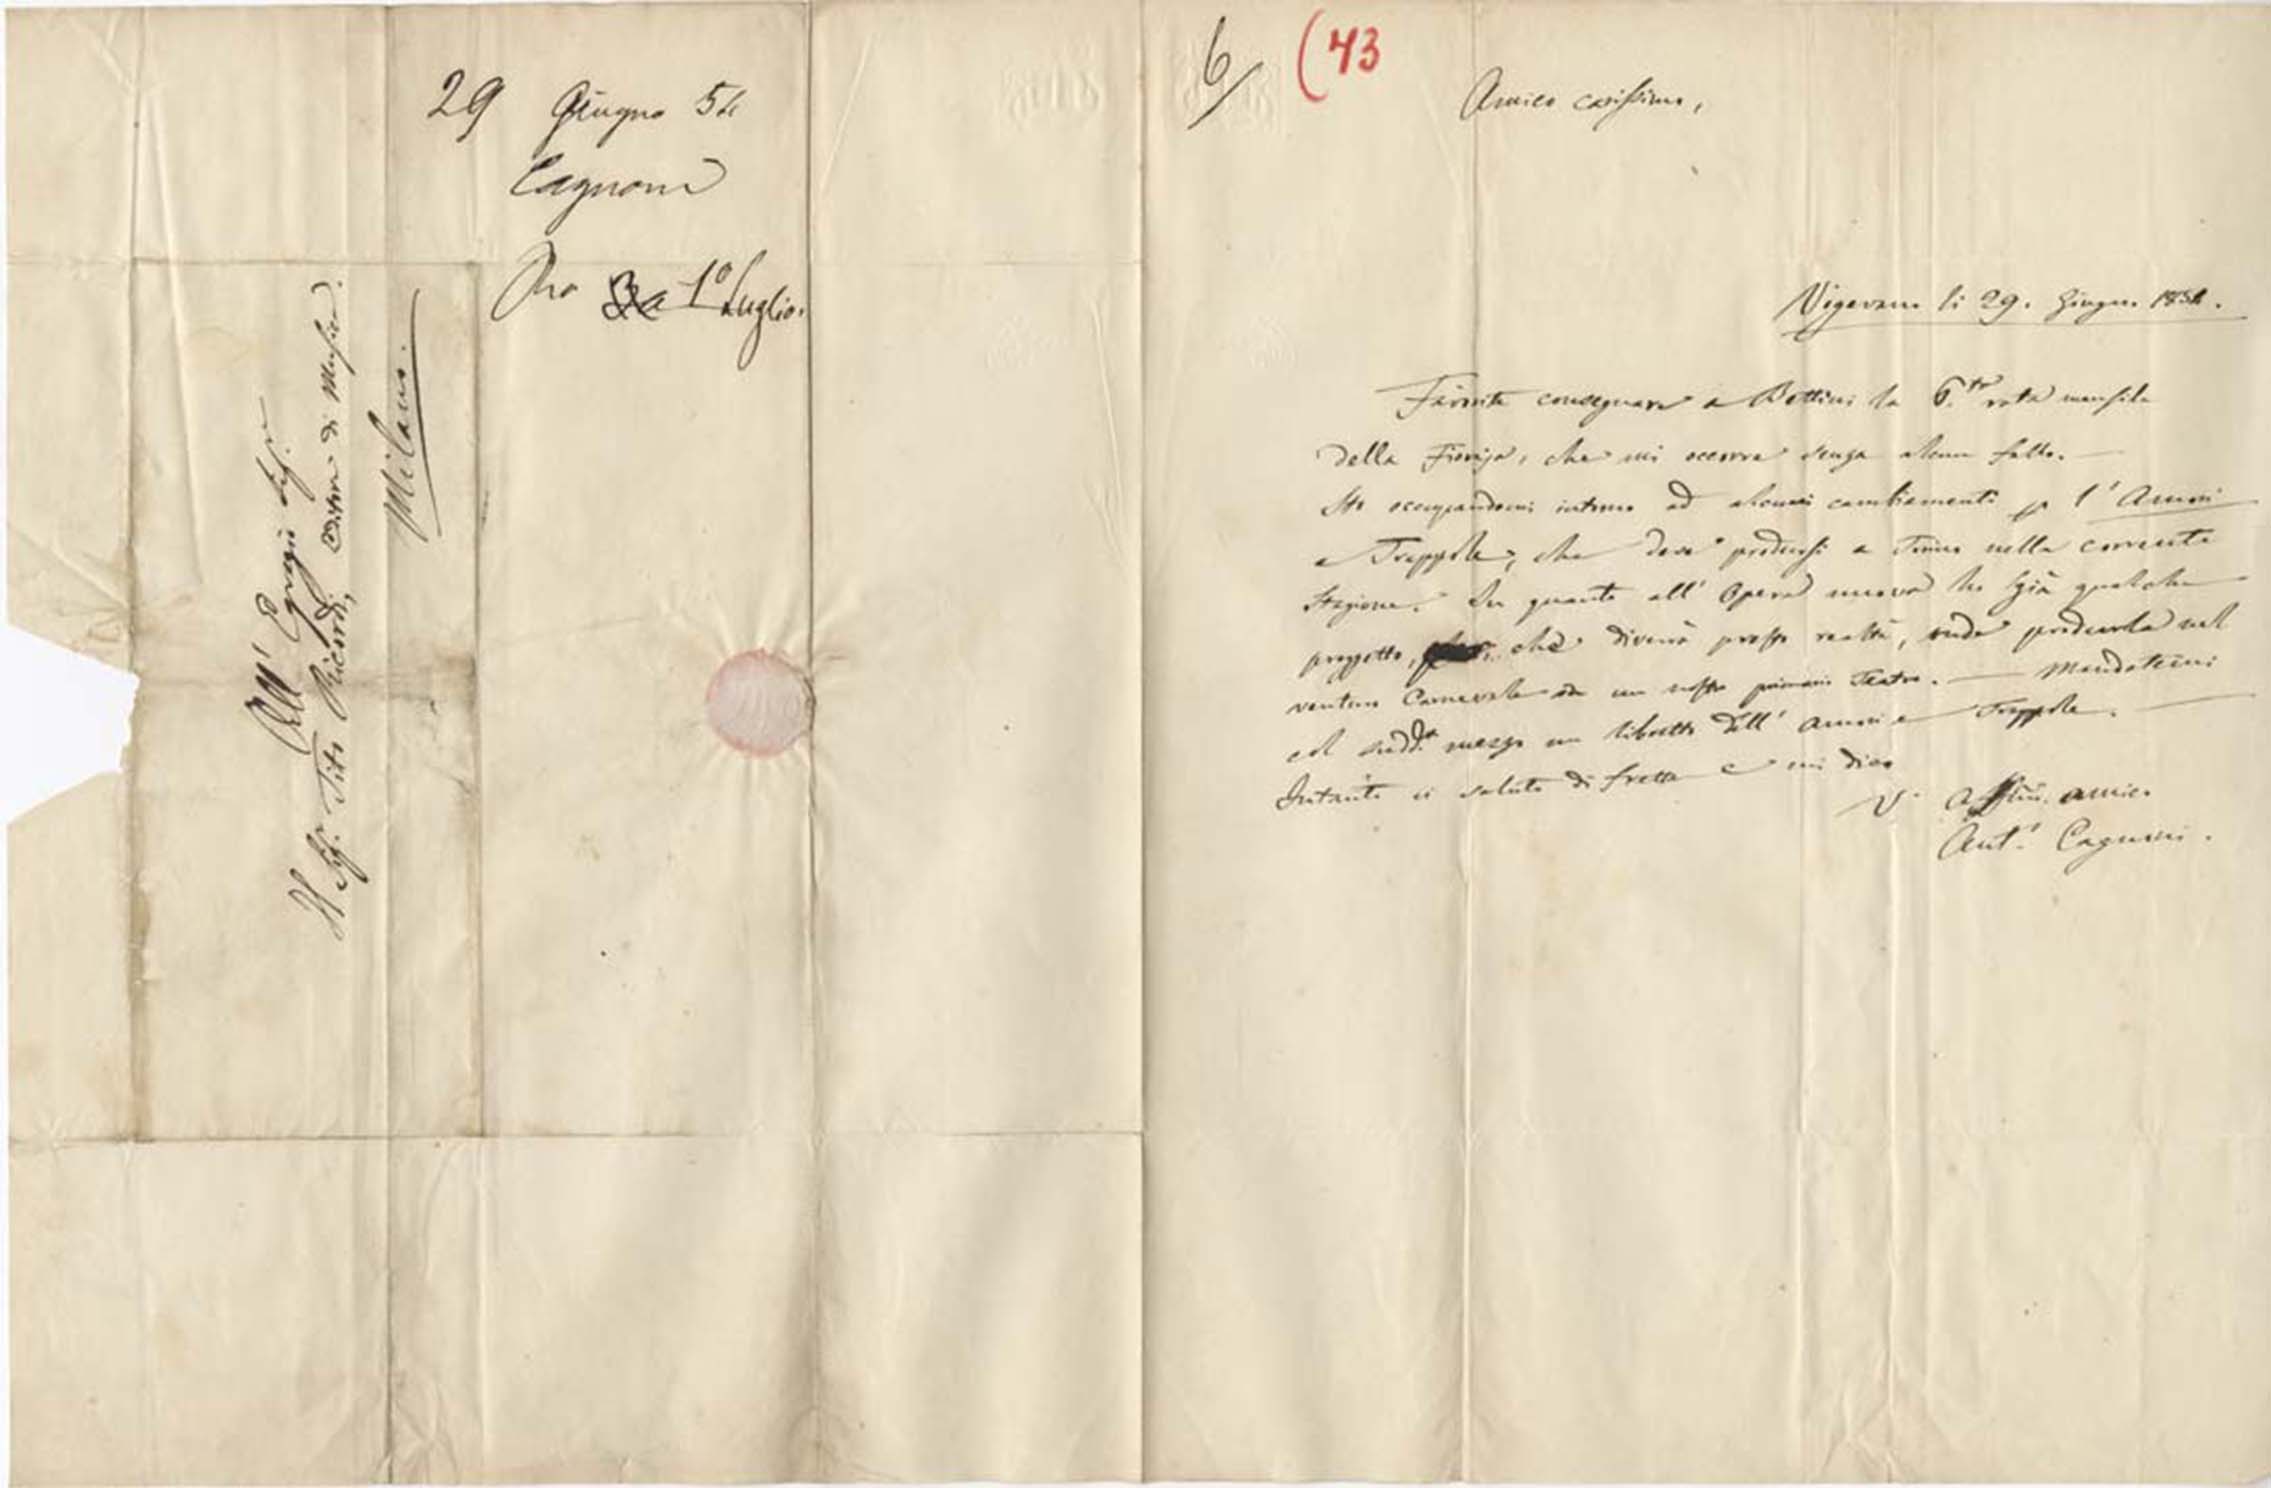 29 Giugno 54
Cagnoni
Rio 1º Luglio.
All' Egregio Sig.re
Il Sig. Tito Ricordi,
Editore di Musica.
Milano.
6/
(43
Amico carissimo,
Vigevano li 29. Giugno 1854.
Favorite consegnare a Bottini la 6.ta rata mensile
della Fioraja, che mi occorre senza alcun fallo. —
Sto occupandomi intorno ad alcuni cambiamenti p l' Amori
e Trappole, che deve prodursi a Torino nella corrente
Stagione. In quanto all' Opera nuova ho già qualche
progetto, che diverrà presto realtà, onde produrla nel
venturo Carnevale in un nostro primario Teatro. — Mandatemi
col sudd.o mezzo un libretto dell' Amori e Trappole. —
Intanto vi saluto di fretta e mi dico
V. aff.mo amico
Ant.o Cagnoni.